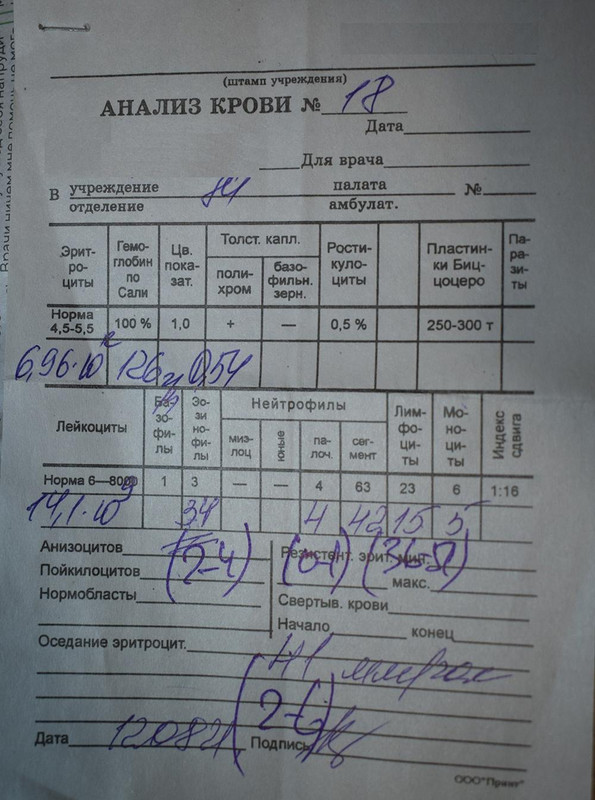 (штамп учреждения)
АНАЛИЗ КРОВИ № 18
Дата
Для врача
В учреждение палата №
отделение амбулат.
Эрит-ро-циты Гемо-глобин по Сали Цв. пока-зат. Толст. капл. поли-хром базо-фильн. зерн. Рости-куло-циты Пластин-ки Биц-цоцеро Па-ра-зи-ты
Норма 4,5-5,5 100 % 1,0 + — 0,5 % 250-300 т
6,96·10¹² 126 0,54
Лейкоциты Ба-зо-фи-лы Эо-зи но-фи-лы Нейтрофилы миэ-лоц юные па-лоч. сег-мент Лим-фо-ци-ты Мо-но-ци-ты Индекс сдвига
Норма 6—8000 1 3 — — 4 63 23 6 1:16
14,1·10⁹ 34 4 42 15 5
Анизоцитов Резистент. эрит. мин.
(2-4) (0-1)
Пойкилоцитов макс.
Нормобласты Свертыв. крови
Начало конец
Оседание эритроцит. 41 мм/час
(2-6)
Дата Подпись
ООО"Принт"